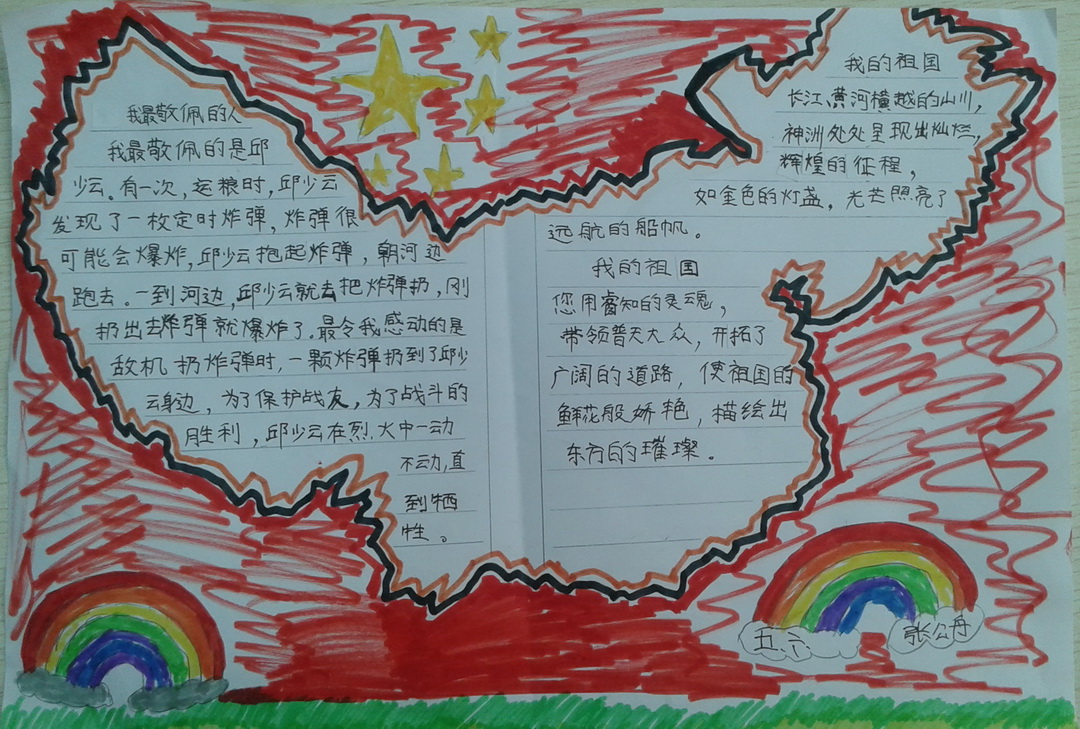 我最敬佩的人
我最敬佩的是邱
少云。有一次,运粮时,邱少云
发现了一枚定时炸弹,炸弹很
可能会爆炸,邱少云抱起炸弹,朝河边
跑去。一到河边,邱少云就去把炸弹扔,刚
扔出去炸弹就爆炸了。最令我感动的是
敌机扔炸弹时,一颗炸弹扔到了邱少
云身边,为了保护战友,为了战斗的
胜利,邱少云在烈火中一动
不动,直
到牺
牲。
我的祖国
长江、黄河横越的山川,
神洲处处呈现出灿烂,
辉煌的征程,
如金色的灯盏,光芒照亮了
远航的船帆。
我的祖国
您用睿知的灵魂,
带领普天大众,开拓了
广阔的道路,使祖国的
鲜花般娇艳,描绘出
东方的璀璨。
五、六
张公丹